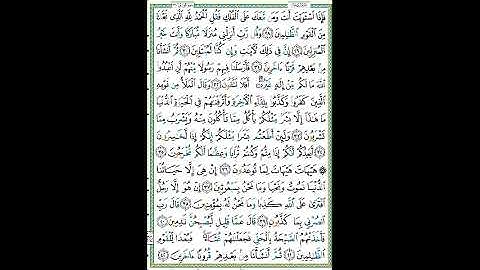 فَإِذَا ٱسْتَوَيْتَ أَنتَ وَمَن مَّعَكَ عَلَى ٱلْفُلْكِ فَقُلِ ٱلْحَمْدُ لِلَّهِ ٱلَّذِى نَجَّىٰنَا
مِنَ ٱلْقَوْمِ ٱلظَّٰلِمِينَ ﴿٢٨﴾ وَقُل رَّبِّ أَنزِلْنِى مُنزَلًا مُّبَارَكًا وَأَنتَ خَيْرُ
ٱلْمُنزِلِينَ ﴿٢٩﴾ إِنَّ فِى ذَٰلِكَ لَءَايَٰتٍ وَإِن كُنَّا لَمُبْتَلِينَ ﴿٣٠﴾ ثُمَّ أَنشَأْنَا
مِنۢ بَعْدِهِمْ قَرْنًا ءَاخَرِينَ ﴿٣١﴾ فَأَرْسَلْنَا فِيهِمْ رَسُولًا مِّنْهُمْ أَنِ ٱعْبُدُوا۟
ٱللَّهَ مَا لَكُم مِّنْ إِلَٰهٍ غَيْرُهُۥٓ أَفَلَا تَتَّقُونَ ﴿٣٢﴾ وَقَالَ ٱلْمَلَأُ مِن قَوْمِهِ
ٱلَّذِينَ كَفَرُوا۟ وَكَذَّبُوا۟ بِلِقَآءِ ٱلْءَاخِرَةِ وَأَتْرَفْنَٰهُمْ فِى ٱلْحَيَوٰةِ ٱلدُّنْيَا
مَا هَٰذَآ إِلَّا بَشَرٌ مِّثْلُكُمْ يَأْكُلُ مِمَّا تَأْكُلُونَ مِنْهُ وَيَشْرَبُ مِمَّا
تَشْرَبُونَ ﴿٣٣﴾ وَلَئِنْ أَطَعْتُم بَشَرًا مِّثْلَكُمْ إِنَّكُمْ إِذًا لَّخَٰسِرُونَ
﴿٣٤﴾ أَيَعِدُكُمْ أَنَّكُمْ إِذَا مِتُّمْ وَكُنتُمْ تُرَابًا وَعِظَٰمًا أَنَّكُم مُّخْرَجُونَ ﴿٣٥﴾
۞ هَيْهَاتَ هَيْهَاتَ لِمَا تُوعَدُونَ ﴿٣٦﴾ إِنْ هِىَ إِلَّا حَيَاتُنَا
ٱلدُّنْيَا نَمُوتُ وَنَحْيَا وَمَا نَحْنُ بِمَبْعُوثِينَ ﴿٣٧﴾ إِنْ هُوَ إِلَّا رَجُلٌ
ٱفْتَرَىٰ عَلَى ٱللَّهِ كَذِبًا وَمَا نَحْنُ لَهُۥ بِمُؤْمِنِينَ ﴿٣٨﴾ قَالَ رَبِّ
ٱنصُرْنِى بِمَا كَذَّبُونِ ﴿٣٩﴾ قَالَ عَمَّا قَلِيلٍ لَّيُصْبِحُنَّ نَٰدِمِينَ ﴿٤٠﴾
فَأَخَذَتْهُمُ ٱلصَّيْحَةُ بِٱلْحَقِّ فَجَعَلْنَٰهُمْ غُثَآءً فَبُعْدًا لِّلْقَوْمِ
ٱلظَّٰلِمِينَ ﴿٤١﴾ ثُمَّ أَنشَأْنَا مِنۢ بَعْدِهِمْ قُرُونًا ءَاخَرِينَ ﴿٤٢﴾